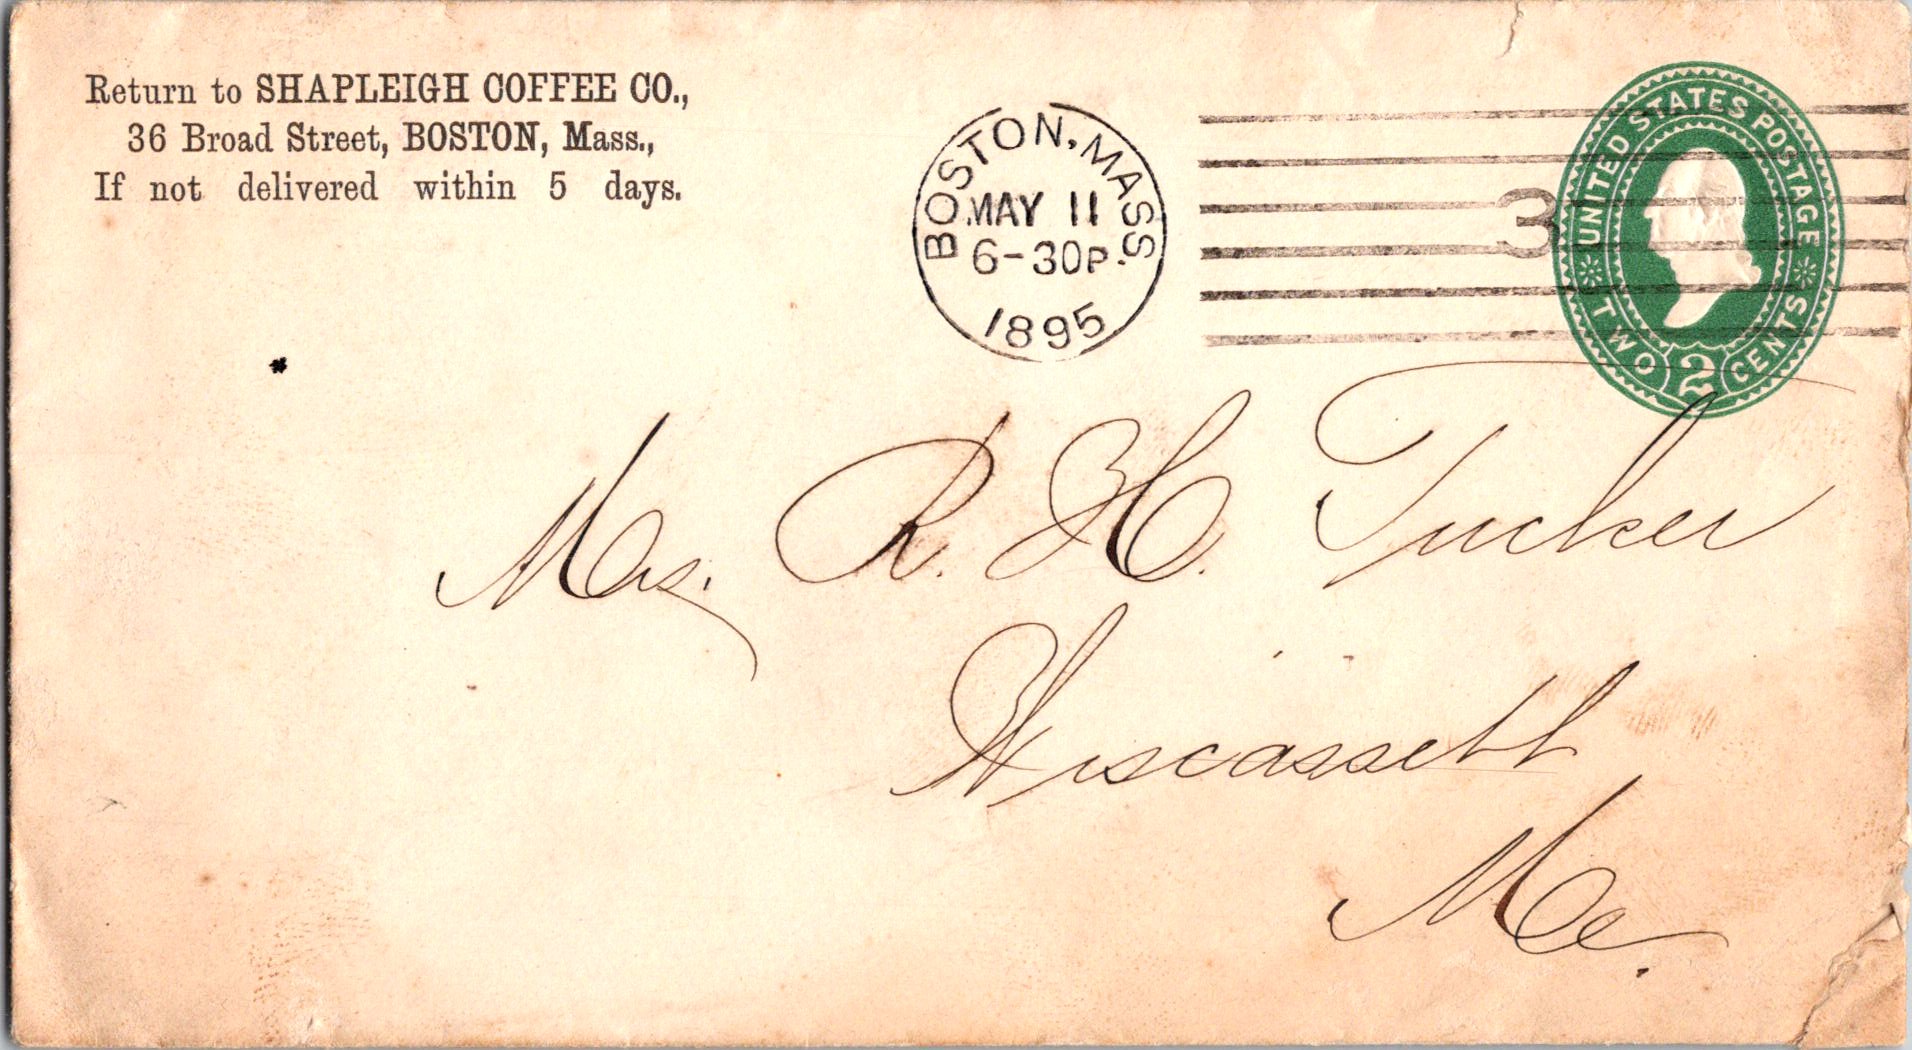 Return to SHAPLEIGH COFFEE CO.,
36 Broad Street, BOSTON, Mass.,
If not delivered within 5 days.
BOSTON, MASS.
MAY 11
6-30P.
1895
3
UNITED STATES POSTAGE
TWO 2 CENTS
Mrs. R. H. Tucker
Wiscassett
Me.